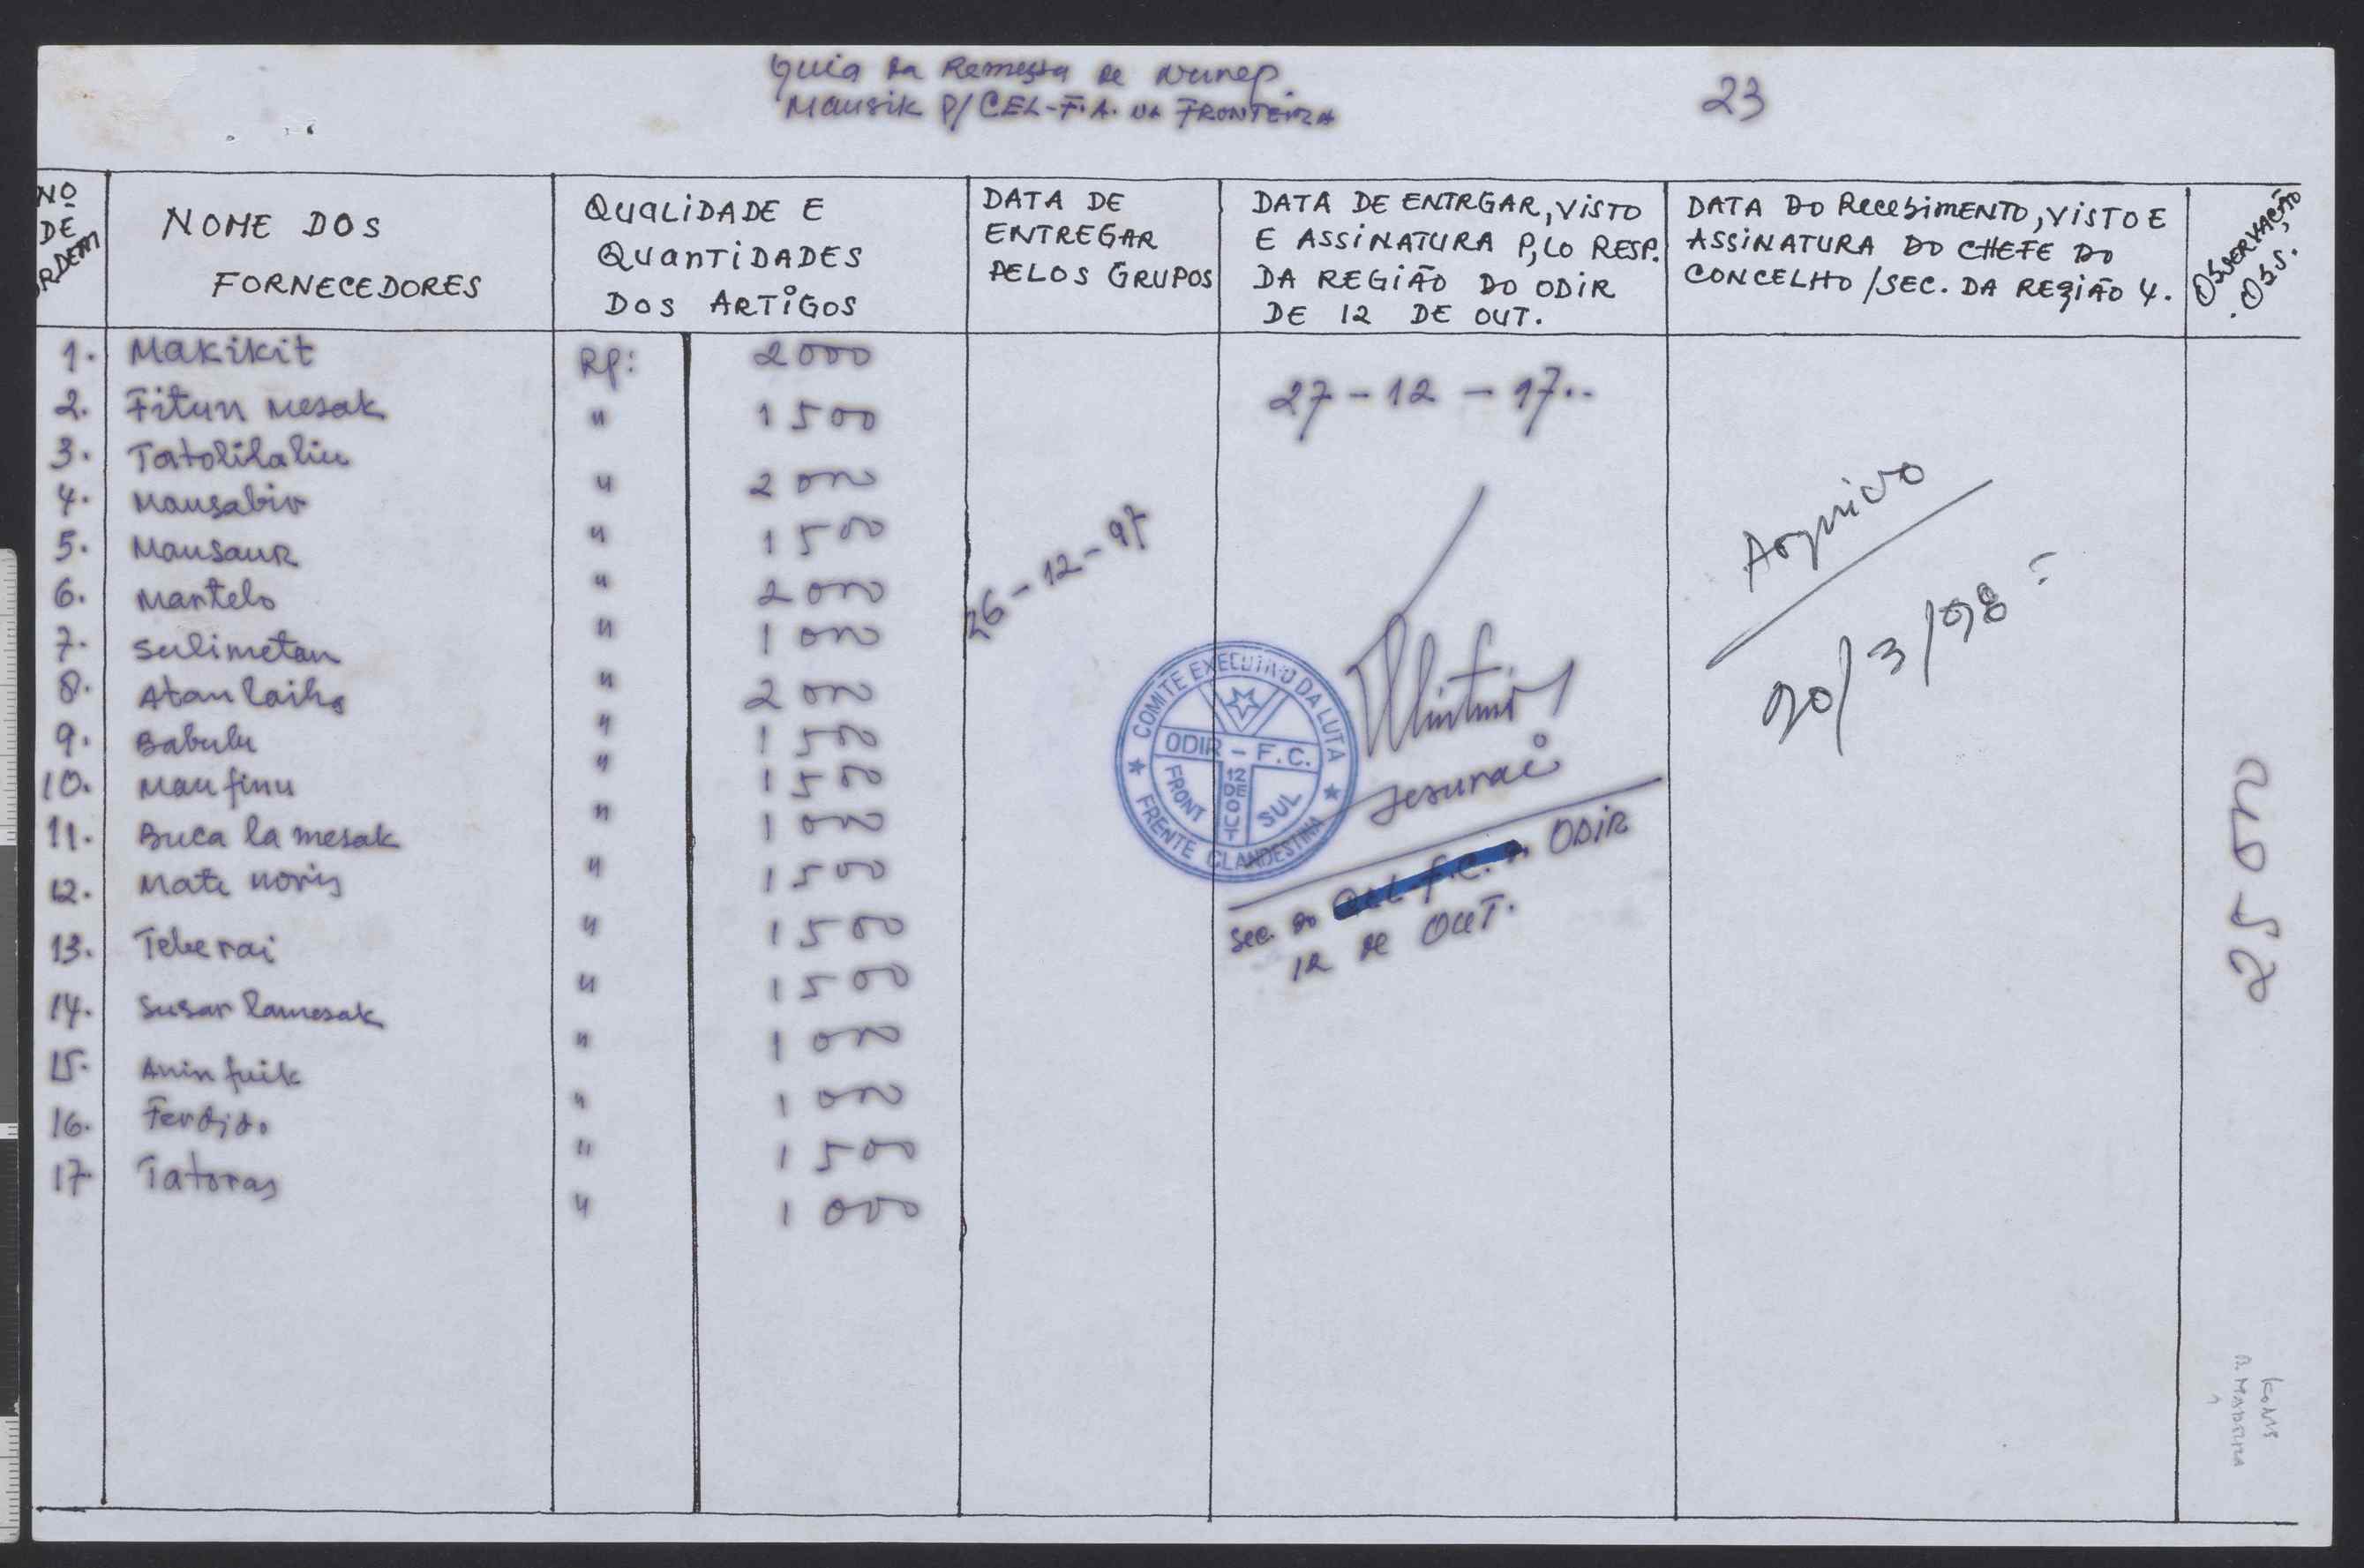 Guia da Remessa de Nunep.
Mausik P/ CEL-F.A. na FRONTEIRA
23
Nº DE ORDEM
NOME DOS FORNECEDORES
QUALIDADE E QUANTIDADES DOS ARTIGOS
DATA DE ENTREGAR PELOS GRUPOS
DATA DE ENTRGAR, VISTO E ASSINATURA P,LO RESP. DA REGIÃO DO ODIR DE 12 DE OUT.
DATA DO RecebiMENTO, VISTO E ASSINATURA DO CHEFE DO CONCELHO /SEC. DA REgiÃO 4.
OBSERVAÇÃO .OBS.
1. Makikit Rp: 2000
2. Fitun mesak " 1500
3. Tatolilaliu " 2000
4. Mausabir " 1500
5. Mausaur " 2000
6. Mantelo " 1000
7. Sulimetan " 2000
8. Atanlaiho " 1500
9. Babulu " 1500
10. Maufinu " 1000
11. Buca la mesak " 1500
12. Mate noris " 1500
13. Teberai " 1500
14. Susar lamesak " 1000
15. Aninfuik " 1000
16. Ferdido " 1500
17 Tatoras " 1000
26-12-97
27-12-97..
COMITÉ EXECUTIVO DA LUTA
ODIR - F.C.
FRONT SUL
12 DE OUT
FRENTE CLANDESTINA
Sec. do ODIR
12 de OUT.
Arquivo
20/3/98 =